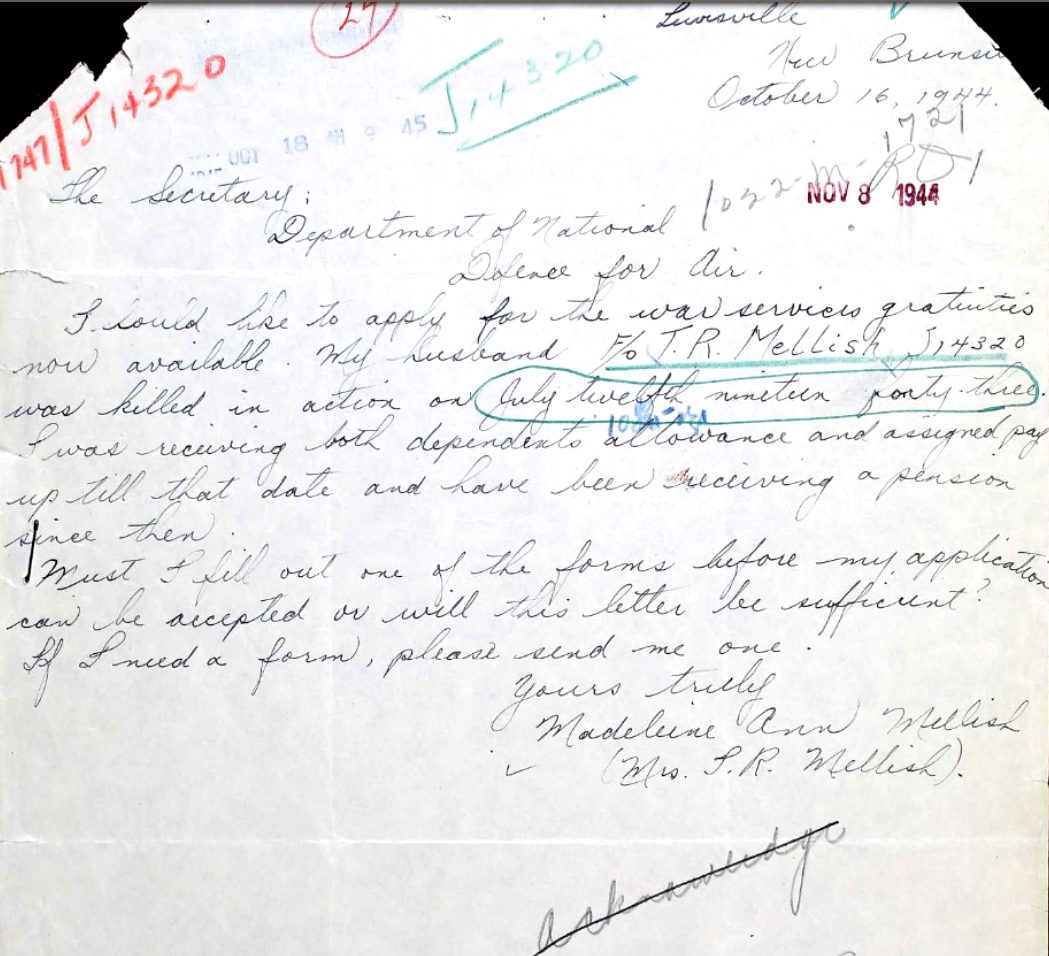 27
Lewisville
New Brunsw
October 16, 1944.
1747/J14320
J14320
OCT 18 AM 9 45
1721
1022-
NOV 8 1944
The Secretary;
Department of National
Defence for Air.
I would like to apply for the war services gratuities
now available. My husband F/o J.R. Mellish J14320
was killed in action on July twelfth nineteen forty-three.
I was receiving both dependents allowance and assigned pay
up till that date and have been receiving a pension
since then.
Must I fill out one of the forms before my application
can be accepted or will this letter be sufficient?
If I need a form, please send me one.
Yours truly
Madeleine Ann Mellish
(Mrs. J.R. Mellish).
acknowledge